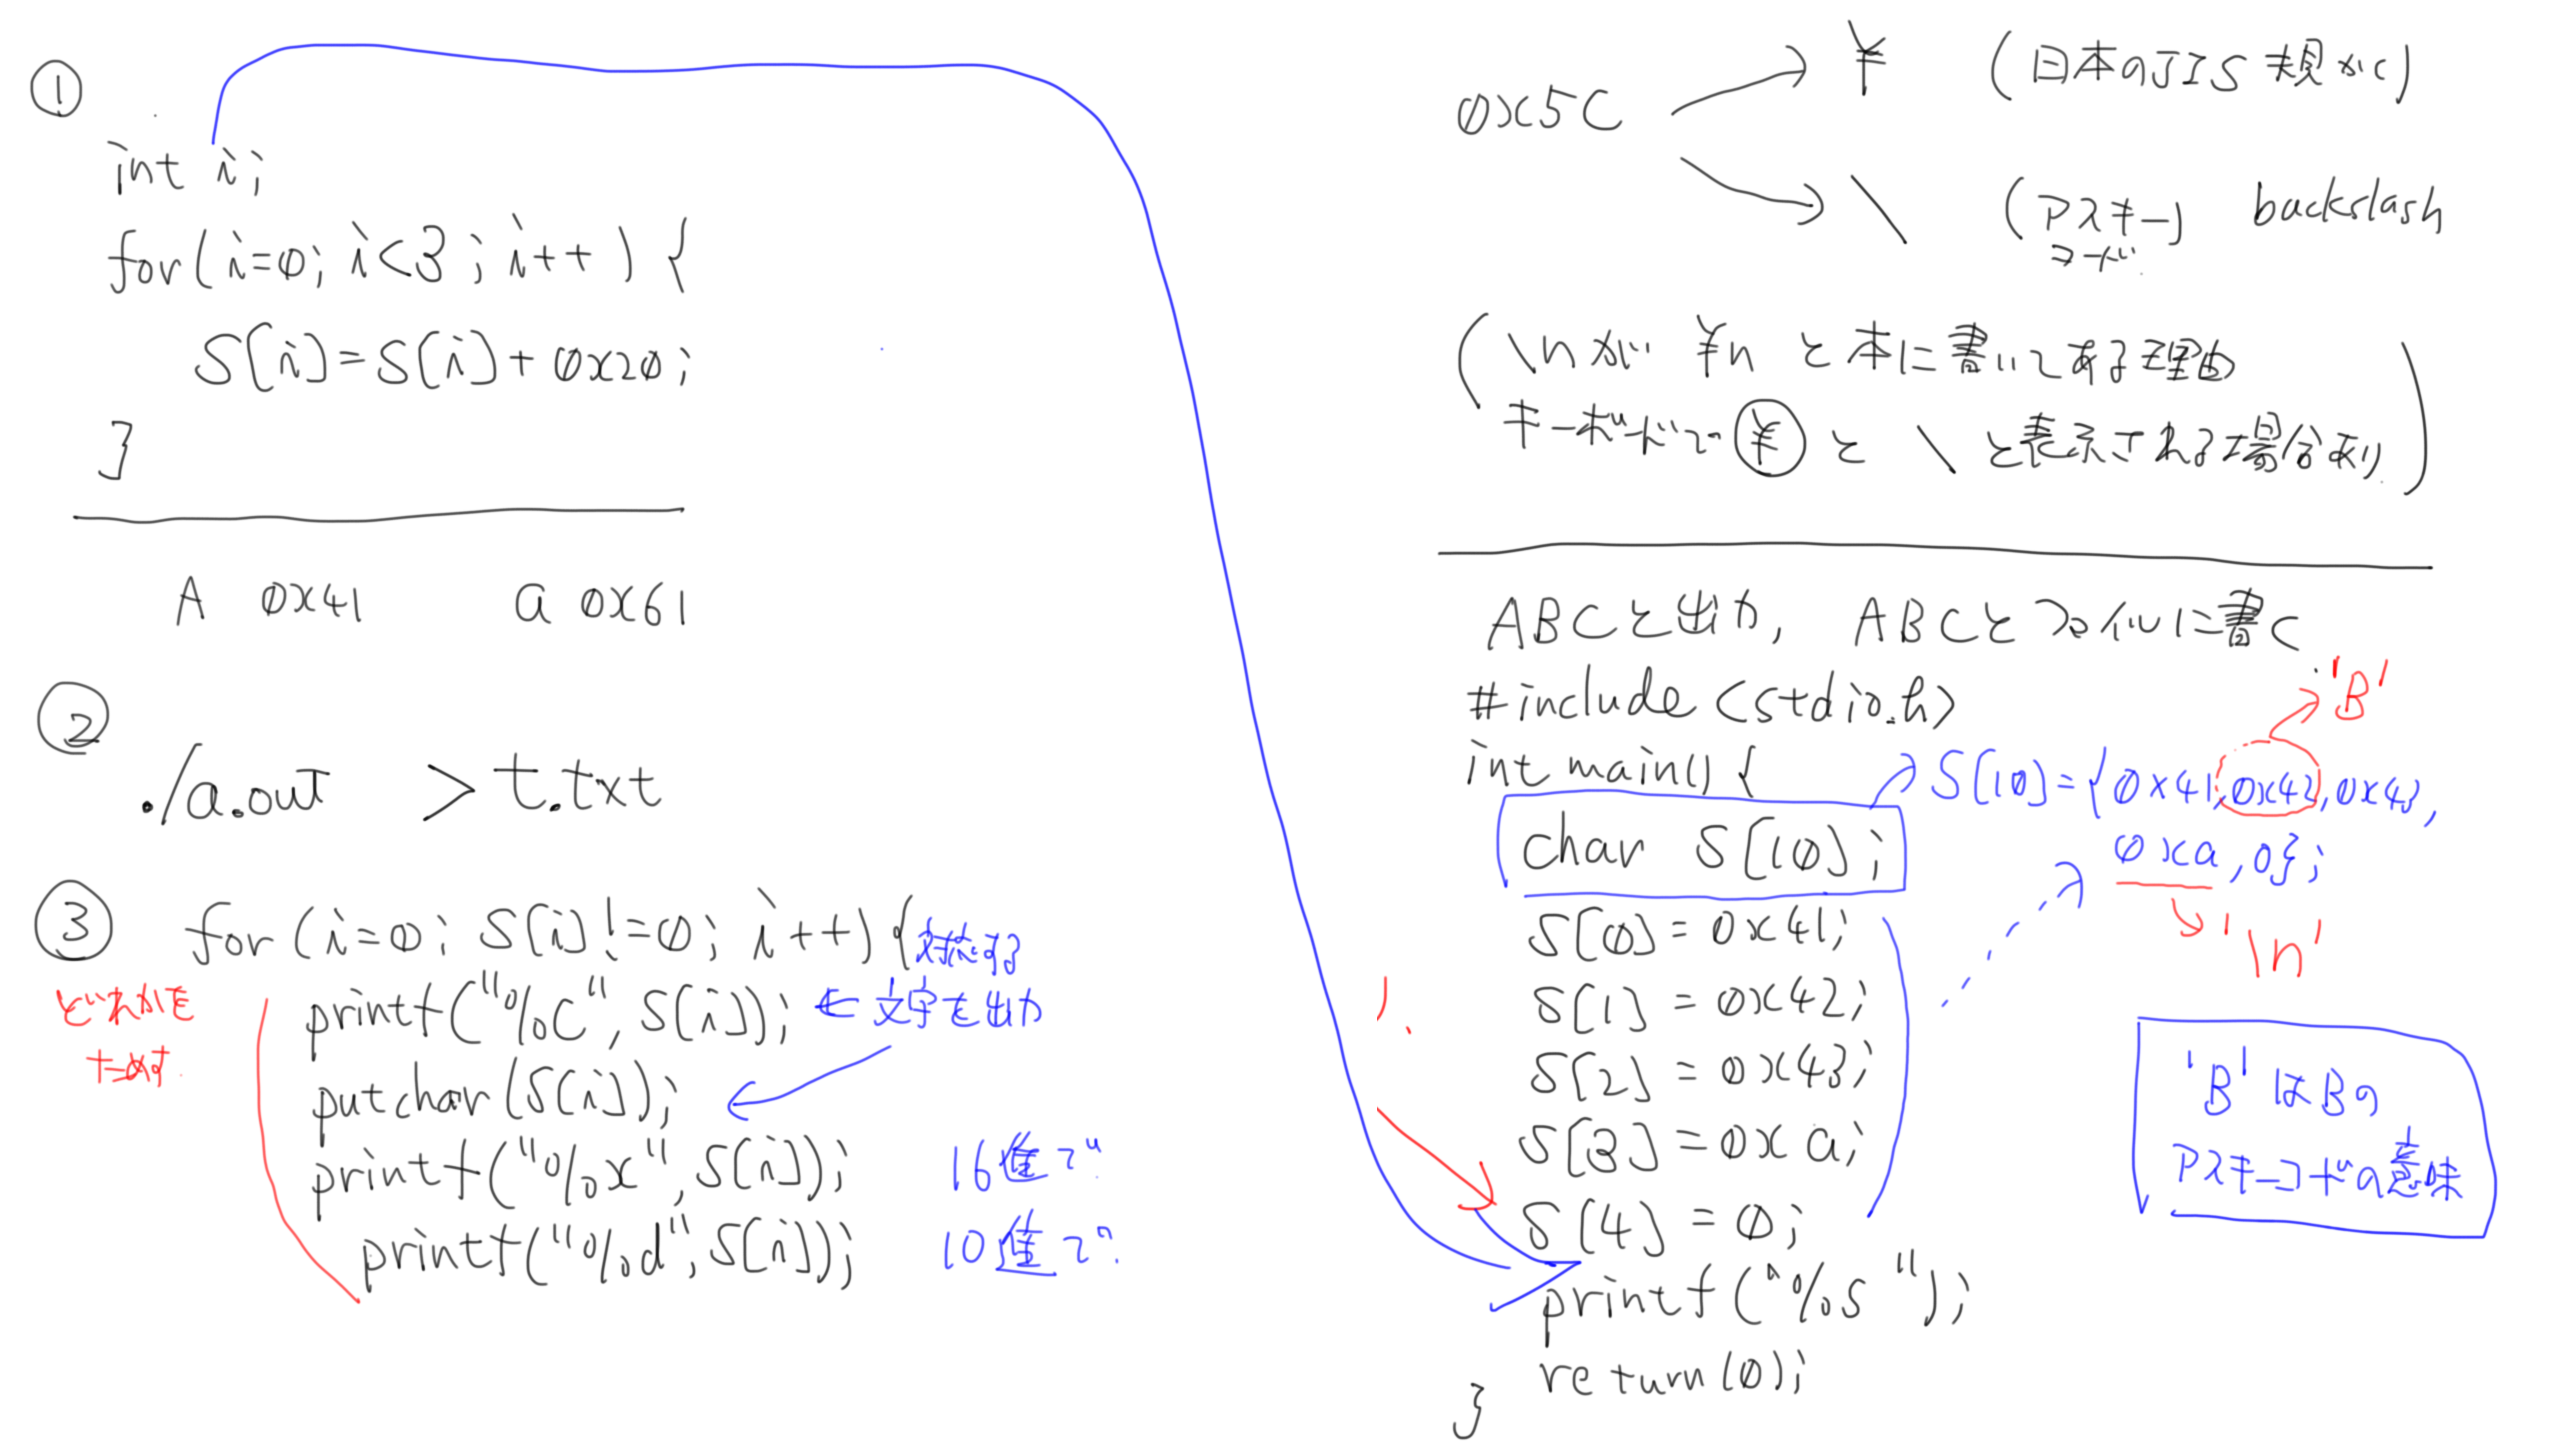 ①
int i;
for(i=0; i<3; i++) {
S[i]=S[i]+0x20;
}
A 0x41 a 0x61
②
./a.out >t.txt
③
for (i=0; S[i]!=0; i++) {
対応する
どれかを
ためす
printf("%c", S[i]); ← 文字を出力
putchar(S[i]);
printf("%x", S[i]); 16進で
printf("%d", S[i]); 10進で
0x5C
¥ (日本のJIS規かく)
\ (アスキー) backslash
コード
(\nが ¥n と本に書いてある理由
キーボードで ¥ と \ と表示される場合あり)
ABCと出力, ABCとファイルに書く
#include <stdio.h>
'B'
int main() {
S[10]={0x41,0x42,0x43,
0xa,0};
char S[10];
'\n'
S[0]=0x41;
S[1]=0x42;
S[2]=0x43;
S[3]=0xa;
S[4]=0;
'B'はBの
アスキーコードの意味
printf("%s");
return(0);
}